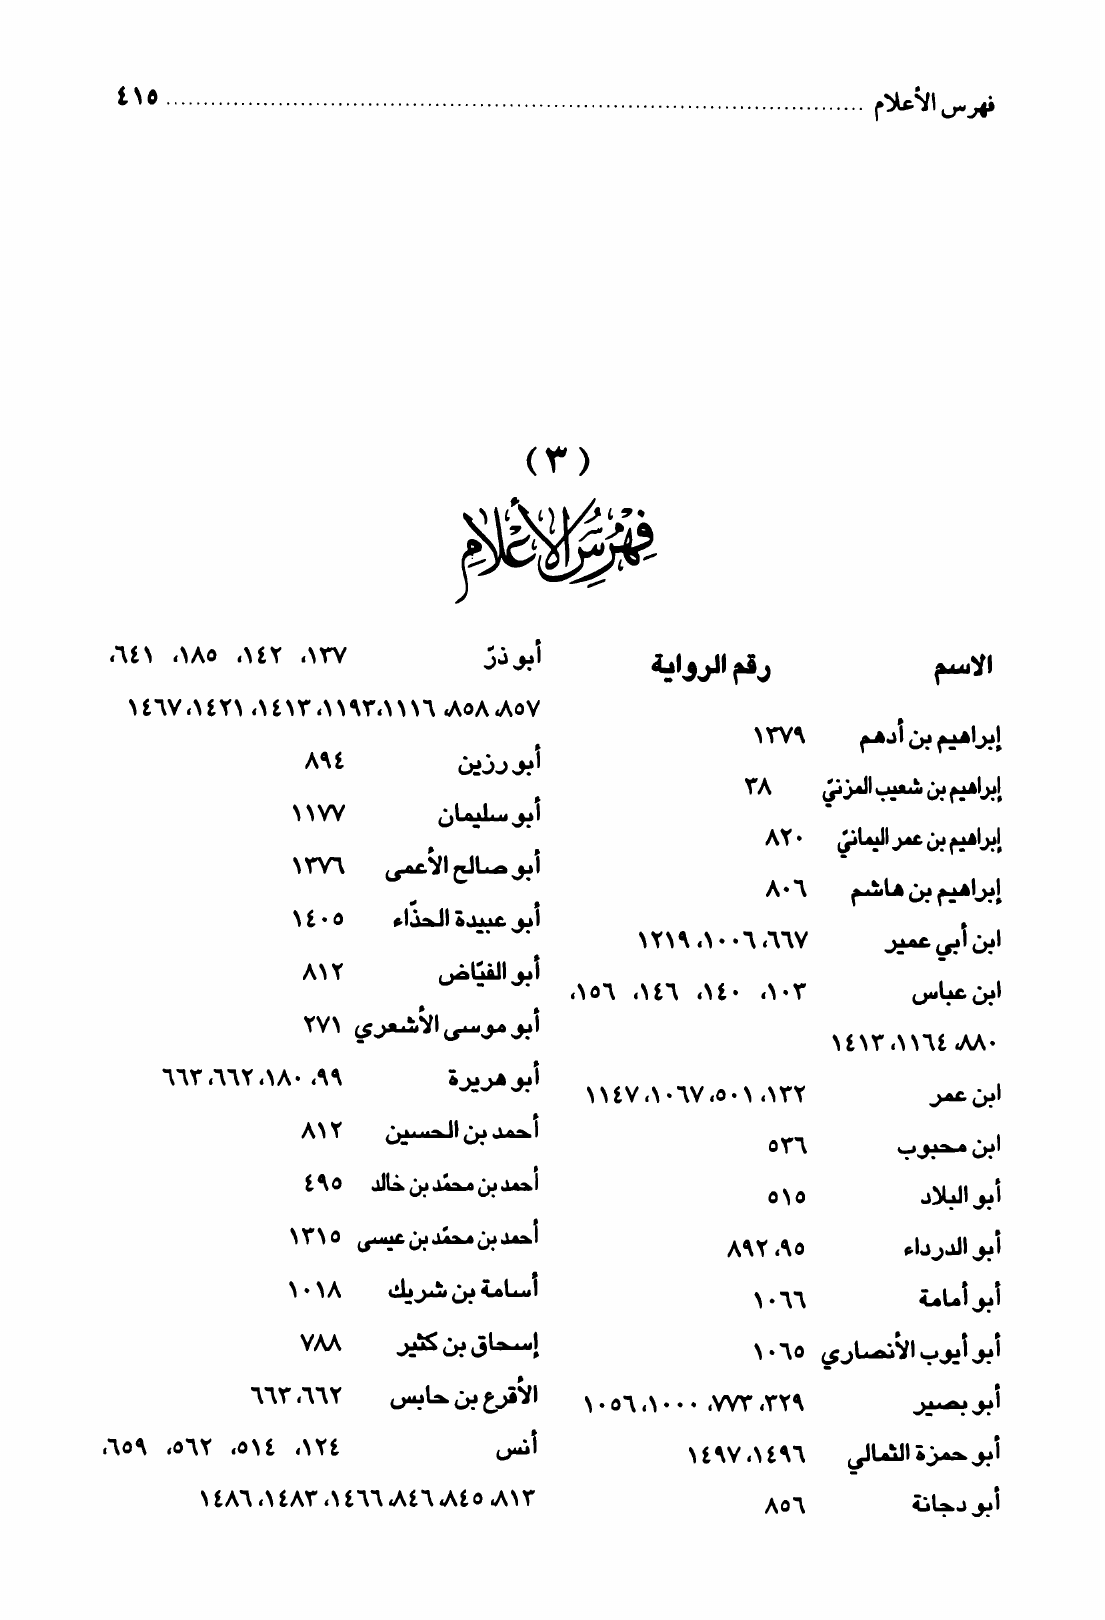 فهرس الأعلام ........................................ ٤١٥
( ٣ )
فِهْرِسُ الأَعْلَامِ
الاسم رقم الرواية
إبراهيم بن أدهم ١٣٧٩
إبراهيم بن شعيب المزنيّ ٣٨
إبراهيم بن عمر اليمانيّ ٨٢٠
إبراهيم بن هاشم ٨٠٦
ابن أبي عمير ٦٦٧، ١٠٠٦، ١٢١٩
ابن عباس ١٠٣، ١٤٠، ١٤٦، ١٥٦،
٨٨٠، ١١٦٤، ١٤١٣
ابن عمر ١٣٢، ٥٠١، ١٠٦٧، ١١٤٧
ابن محبوب ٥٣٦
أبو البلاد ٥١٥
أبو الدرداء ٩٥، ٨٩٢
أبو أمامة ١٠٦٦
أبو أيوب الأنصاري ١٠٦٥
أبو بصير ٣٢٩، ٧٧٣، ١٠٠٠، ١٠٥٦
أبو حمزة الثمالي ١٤٩٦، ١٤٩٧
أبو دجانة ٨٥٦
أبو ذرّ ١٣٧، ١٤٢، ١٨٥، ٦٤١،
٨٥٧، ٨٥٨، ١١١٦، ١١٩٣، ١٤١٣، ١٤٢١، ١٤٦٧
أبو رزين ٨٩٤
أبو سليمان ١١٧٧
أبو صالح الأعمى ١٣٧٦
أبو عبيدة الحذّاء ١٤٠٥
أبو الفيّاض ٨١٢
أبو موسى الأشعري ٢٧١
أبو هريرة ٩٩، ١٨٠، ٦٦٢، ٦٦٣
أحمد بن الحسين ٨١٢
أحمد بن محمّد بن خالد ٤٩٥
أحمد بن محمّد بن عيسى ١٣١٥
أسامة بن شريك ١٠١٨
إسحاق بن كثير ٧٨٨
الأقرع بن حابس ٦٦٢، ٦٦٣
أنس ١٢٤، ٥١٤، ٥٦٢، ٦٥٩،
٨١٣، ٨٤٥، ٨٤٦، ١٤٦٦، ١٤٨٣، ١٤٨٦